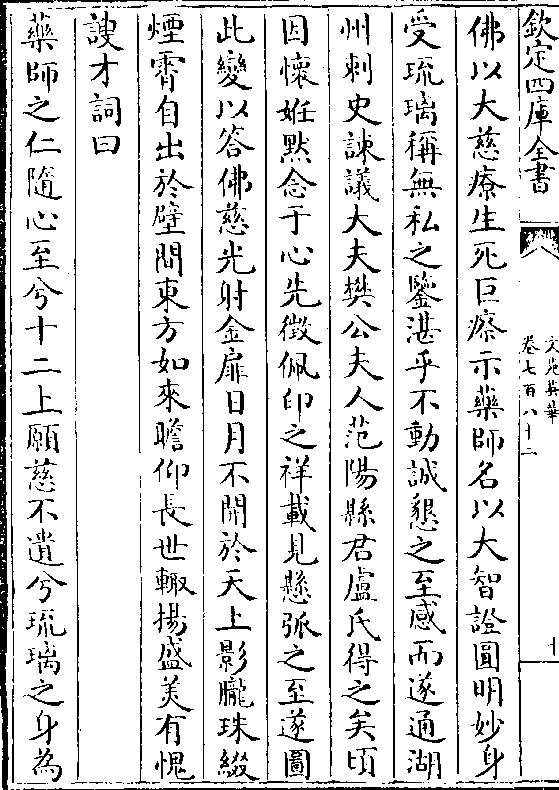 欽定四庫全書
文苑英華
卷七百八十二
十
佛以大慈療生死巨瘵示藥師名以大智證圓明妙身
受琉璃稱無私之鑒湛乎不動誠懇之至感而遂通湖
州刺史諫議大夫樊公夫人范陽縣君盧氏得之矣頃
因懷姙默念于心先徵佩印之祥載見懸弧之至遂圖
此變以答佛慈光射金扉日月不開於天上影朧珠綴
煙霄自出於壁間東方如來瞻仰長世輙揚盛美有愧
謏才詞曰
藥師之仁隨心至兮十二上願慈不遺兮琉璃之身為